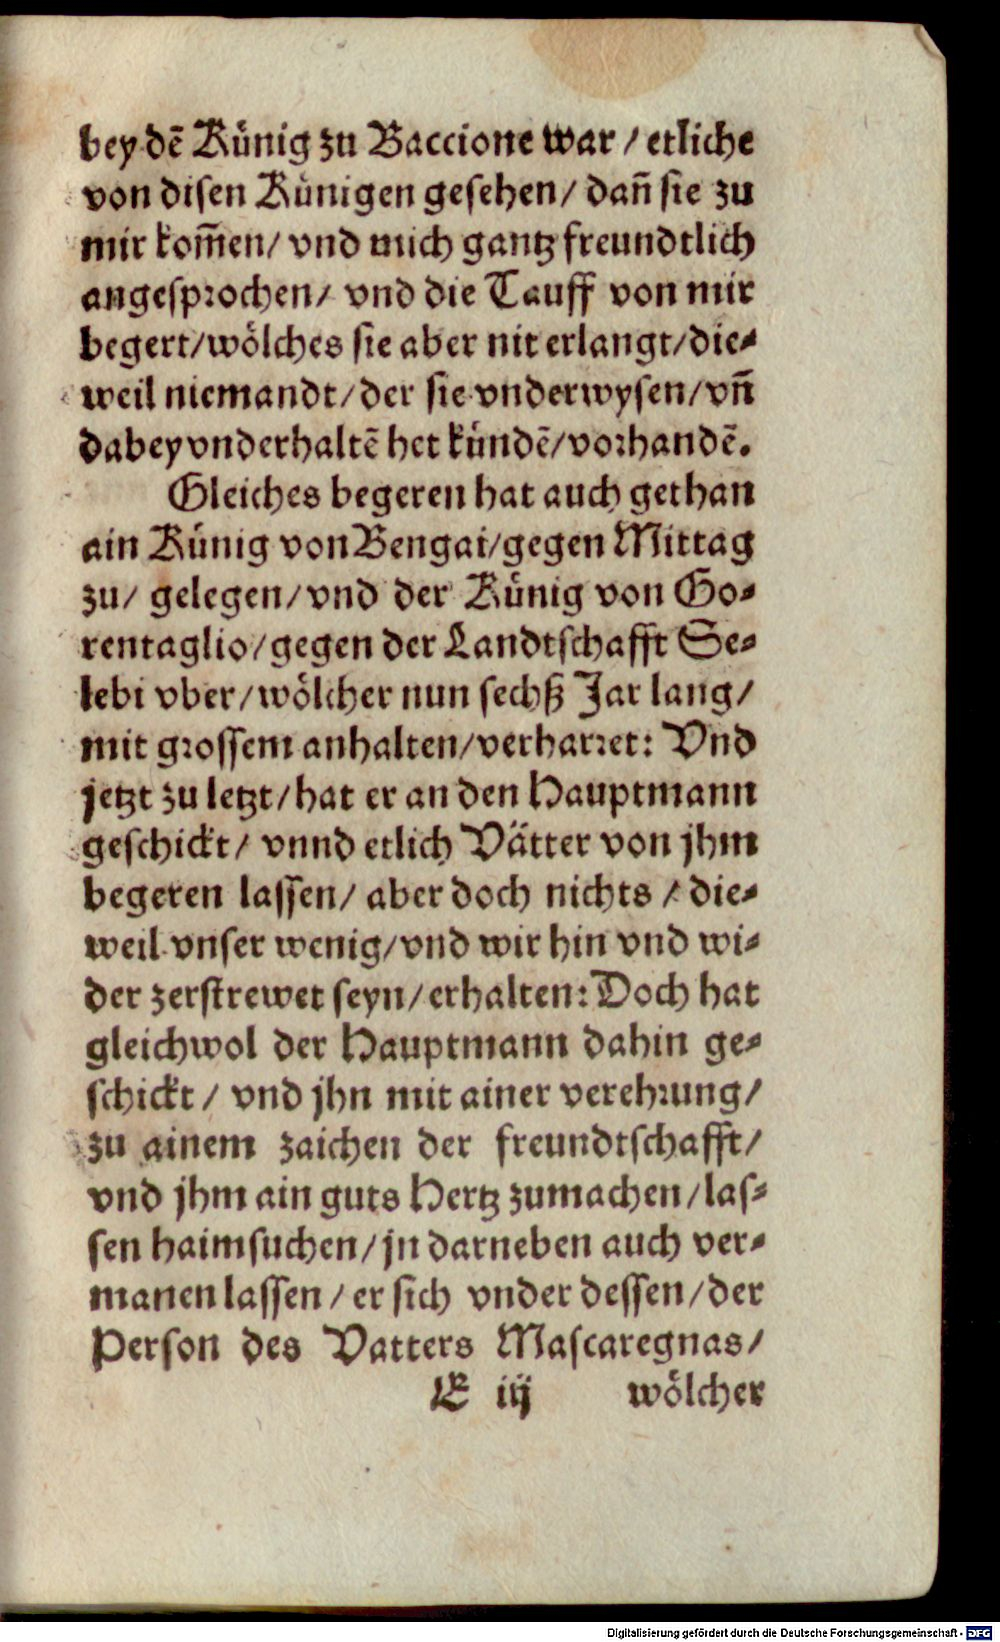 bey dē Künig zu Baccione war / etliche
von disen Künigen gesehen / dañ sie zu
mir kom̃en / vnd mich gantz freundtlich
angesprochen / vnd die Tauff von mir
begert / wölches sie aber nit erlangt / die⸗
weil niemandt / der sie vnderwysen / vñ
dabey vnderhaltē het kündē / vorhandē.
Gleiches begeren hat auch gethan
ain Künig von Bengai / gegen Mittag
zu / gelegen / vnd der Künig von Go⸗
rentaglio / gegen der Landtschafft Se⸗
lebi vber / wölcher nun sechß Jar lang /
mit grossem anhalten / verharret: Vnd
jetzt zu letzt / hat er an den Hauptmann
geschickt / vnnd etlich Vätter von jhm
begeren lassen / aber doch nichts / die⸗
weil vnser wenig / vnd wir hin vnd wi⸗
der zerstrewet seyn / erhalten: Doch hat
gleichwol der Hauptmann dahin ge⸗
schickt / vnd jhn mit ainer verehrung /
zu ainem zaichen der freundtschafft /
vnd jhm ain guts Hertz zumachen / las⸗
sen haimsuchen / jn darneben auch ver⸗
manen lassen / er sich vnder dessen / der
Person des Vatters Mascaregnas /
E iij wölcher
Digitalisierung gefördert durch die Deutsche Forschungsgemeinschaft - DFG